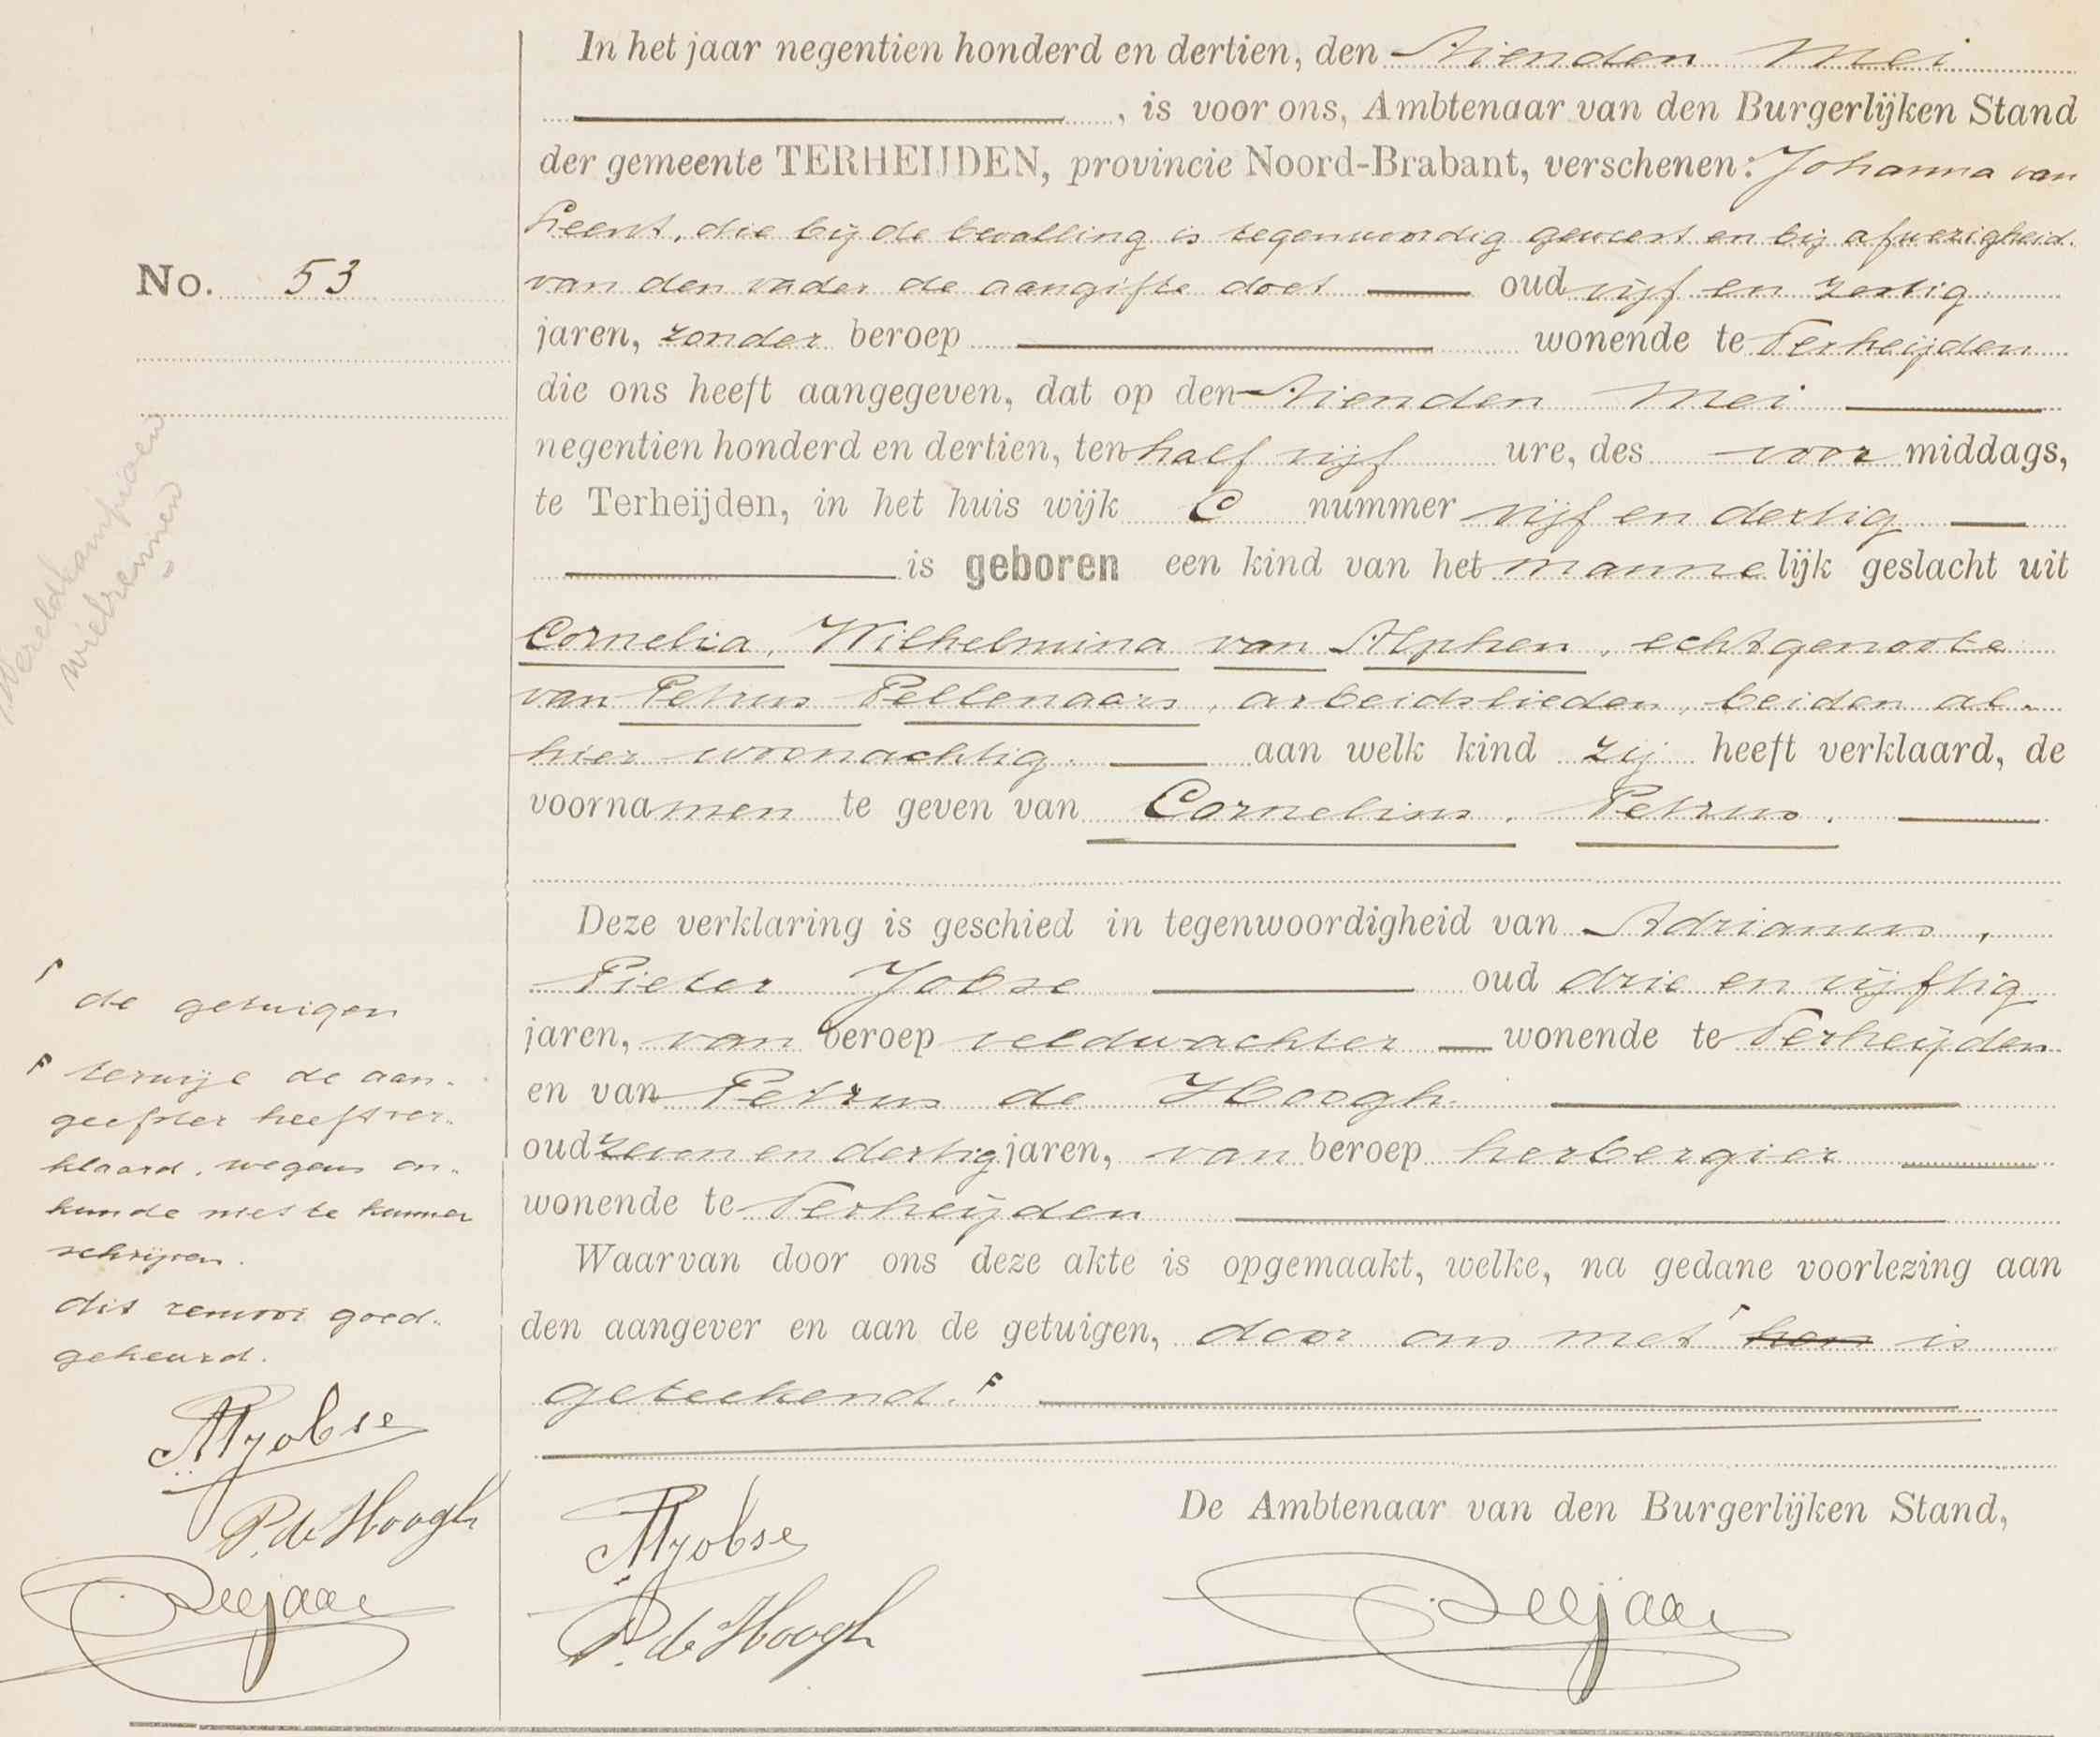 In het jaar negentien honderd en dertien, den tienden Mei
, is voor ons, Ambtenaar van den Burgerlijken Stand
der gemeente TERHEIJDEN, provincie Noord-Brabant, verschenen: Johanna van
Heent, die bij de bevalling is tegenwoordig geweest en bij afwezigheid
van den vader de aangifte doet oud vijf en zestig
jaren, zonder beroep wonende te Terheijden
die ons heeft aangegeven, dat op den tienden Mei
negentien honderd en dertien, ten half vijf ure, des voor middags,
te Terheijden, in het huis wijk C nummer vijf en dertig
is geboren een kind van het mannelijk geslacht uit
Cornelia, Wilhelmina van Alphen, echtgenoote
van Petrus Pellenaars, arbeidslieden, beiden al-
hier woonachtig. aan welk kind zij heeft verklaard, de
voornamen te geven van Cornelius, Petrus.
Deze verklaring is geschied in tegenwoordigheid van Adrianus,
Pieter Jobse oud drie en vijftig
jaren, van beroep veldwachter wonende te Terheijden
en van Petrus de Hoogh
oud zeven en dertig jaren, van beroep herbergier
wonende te Terheijden
Waarvan door ons deze akte is opgemaakt, welke, na gedane voorlezing aan
den aangever en aan de getuigen, door ons met ⌈ hen is
geteekend. F
APJobse
P. de Hoogh
De Ambtenaar van den Burgerlijken Stand,
No. 53
Wereldkampioen
wielrennen
⌈ de getuigen
F terwijl de aan-
geefster heeft ver-
klaard, wegens on-
kunde niet te kunnen
schrijven.
dit renvooi goed-
gekeurd.
APJobse
P. de Hoogh